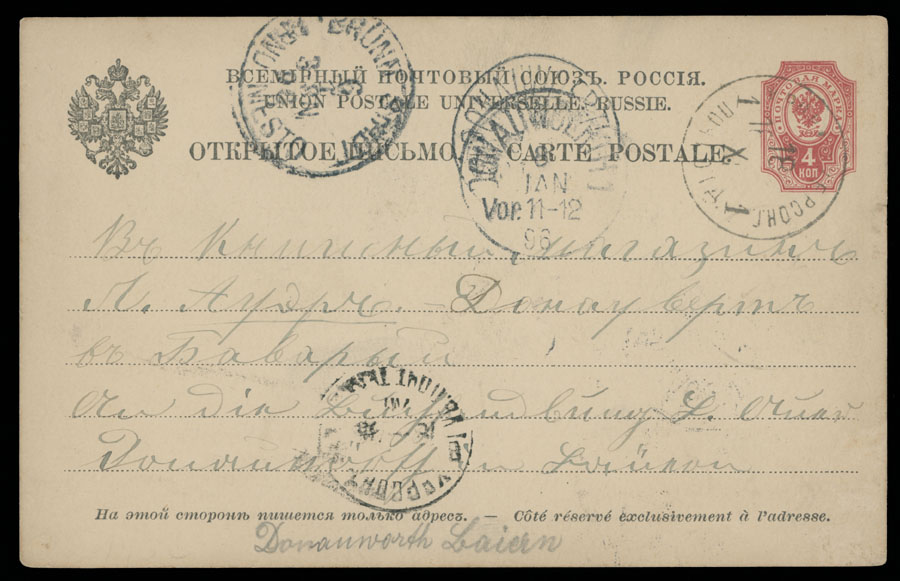 ВСЕМІРНЫЙ ПОЧТОВЫЙ СОЮЗЪ. РОССІЯ.
UNION POSTALE UNIVERSELLE. RUSSIE.
ОТКРЫТОЕ ПИСЬМО CARTE POSTALE
ПОЧТОВАЯ МАРКА
4
КОП
DONAUWOERTH 1
JAN
Vor. 11-12
96
Въ Книжный магазинъ
Л. Ауэръ. - Донаувертъ
въ Баварыи
An die Buchhandlung L. Auer
Donauwörth in Baiern
На этой сторонѣ пишется только адресъ. — Côté réservé exclusivement à l'adresse.
Donauwörth Baiern